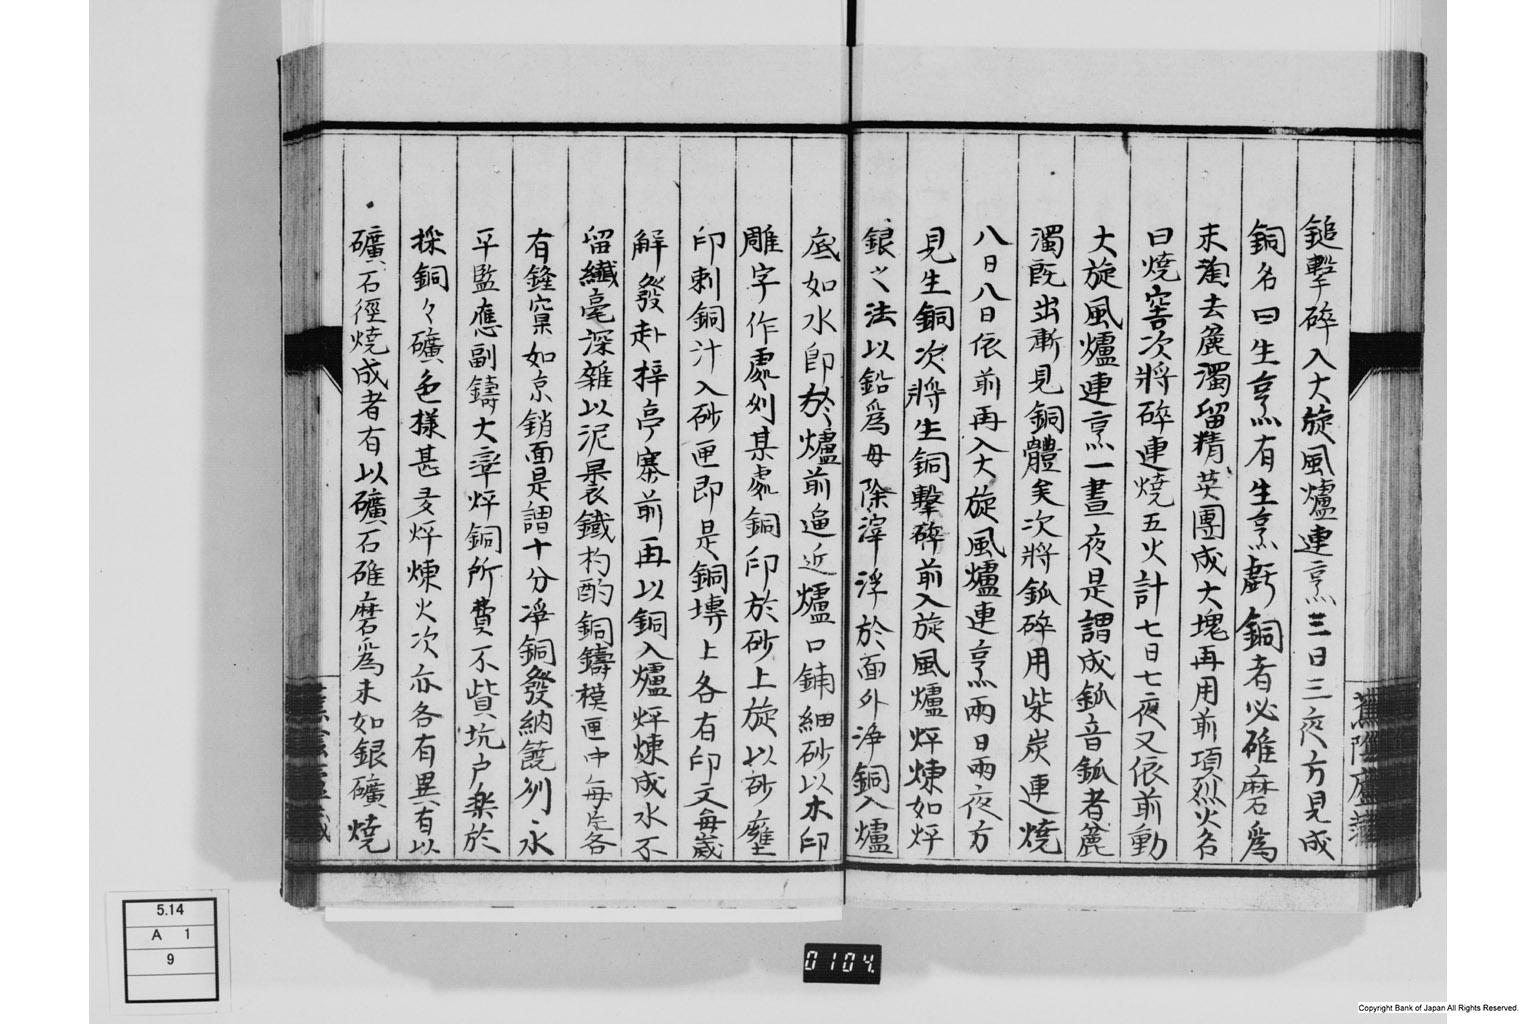 鎚擊碎入大旋風爐連烹三日三夜方見成
銅名曰生烹有生烹虧銅者必碓磨爲
末淘去麄濁留精英團成大塊再用前項烈火名
曰燒窖次將碎連燒五火計七日七夜又依前動
大旋風爐連烹一晝夜是謂成䤥音䤥者麄
濁既出漸見銅體矣次將䤥碎用柴炭連燒
八日八日依前再入大旋風爐連烹兩日兩夜方
見生銅次將生銅擊碎前入旋風爐烀煉如烀
銀之法以鉛爲母除滓浮於面外淨銅入爐
底如水卽於爐前逼近爐口鋪細砂以木印
雕字作處州某處銅印於砂上旋以砂壅
印刺銅汁入砂匣即是銅塼上各有印文每歲
解發赴梓亭寨前再以銅入爐烀煉成水不
留纖毫深雜以泥裹鐵杓酌銅鑄模匣中每片各
有鋒窠如京銷面是謂十分淨銅發納饒州永
平監應副鑄大率烀銅所費不貲坑户樂於
採銅々礦色樣甚多烀煉火次亦各有異有以
礦石徑燒成者有以礦石碓磨爲末如銀礦燒
蕉陰廬藏
5.14
A 1
9
0104.
Copyright Bank of Japan All Rights Reserved.